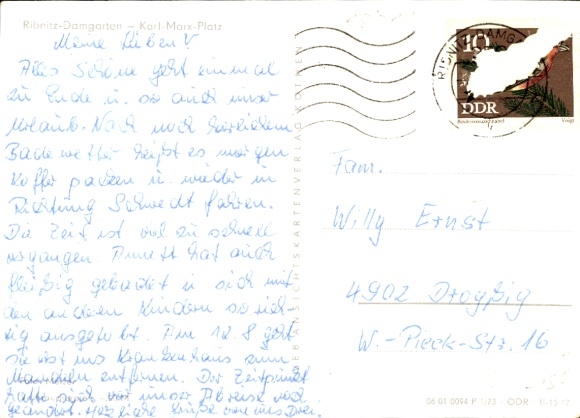 Ribnitz-Damgarten — Karl-Marx-Platz
Meine Lieben!
Alles Schöne geht einmal
zu Ende u. so auch unser
Urlaub. Nach noch herrlichem
Badewetter heißt es morgen
Koffer packen u. wieder in
Richtung Schwedt fahren.
Die Zeit ist viel zu schnell
vergangen. Annett hat auch
fleißig gebadet u sich mit
den anderen Kindern so rich-
tig ausgetobt. Am 12.8 geht
sie ins Krankenhaus zum
Mandeln entfernen. Der Zeitpunkt
hatte sich vor unser Abreise noch
geändert. Herzliche Grüße von uns Drei.
10
DDR
Voigt
Fam.
Willy Ernst
4902 Droyßig
W.-Pieck-Str. 16
06 01 0094 P 1/73 - DDR